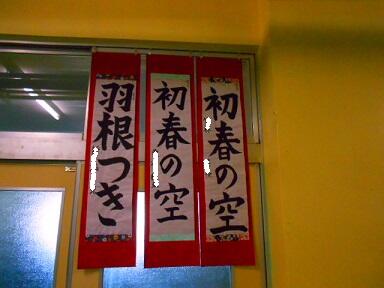 初春の空
初春の空
羽根つき